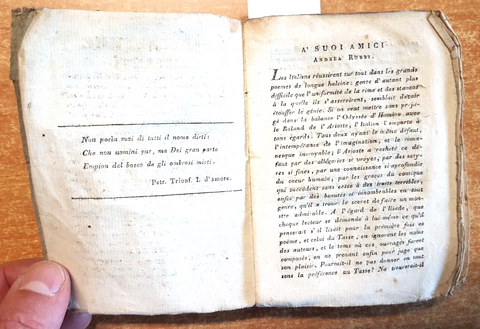 Non poria mai di tutti il nome dirti:
Che non uomini pur, ma Dei gran parte
Empion del bosco de gli ombrosi mirti.
Petr. Trionf. I. d'amore.
A' SUOI AMICI
ANDREA RUBBI.
Les Italiens réussirent sur tout dans les grands
poemes de longue haleine: genre d'autant plus
difficile que l'uniformité de la rime et des stances
à la quelle ils s'asservirent, semblait devoir
étouffer le génie. Si on veut mettre sans préju-
gé dans la balance l'Odyssée d'Homère avec
le Roland de l'Arioste, l'Italien l'emporte à
tous égards. Tous deux ayant le même défaut,
l'intempérance de l'imagination, et le roma-
nesque incroyable; l'Arioste a racheté ce dé-
faut par des allégories si vrayes, par des saty-
res si fines, par une connaissance si approfondie
du coeur humain, par les graces du comique
qui succèdent sans cesse à des traits terribles,
enfin par des beautés si innombrables en tout
genre, qu'il a trouvé le secret de faire un mon-
stre admirable. A l'égard de l'Iliade, que
chaque lecteur se demande à lui-même ce qu'il
penserait s'il lisait pour la première fois ce
poème, et celui du Tasse, en ignorant les noms
des auteurs, et le tems où ces ouvrages furent
composés, en ne prenant enfin pour juge que
son plaisir. Pourrait-il ne pas donner en tout
sens la préférence au Tasse? Ne trouverait-il